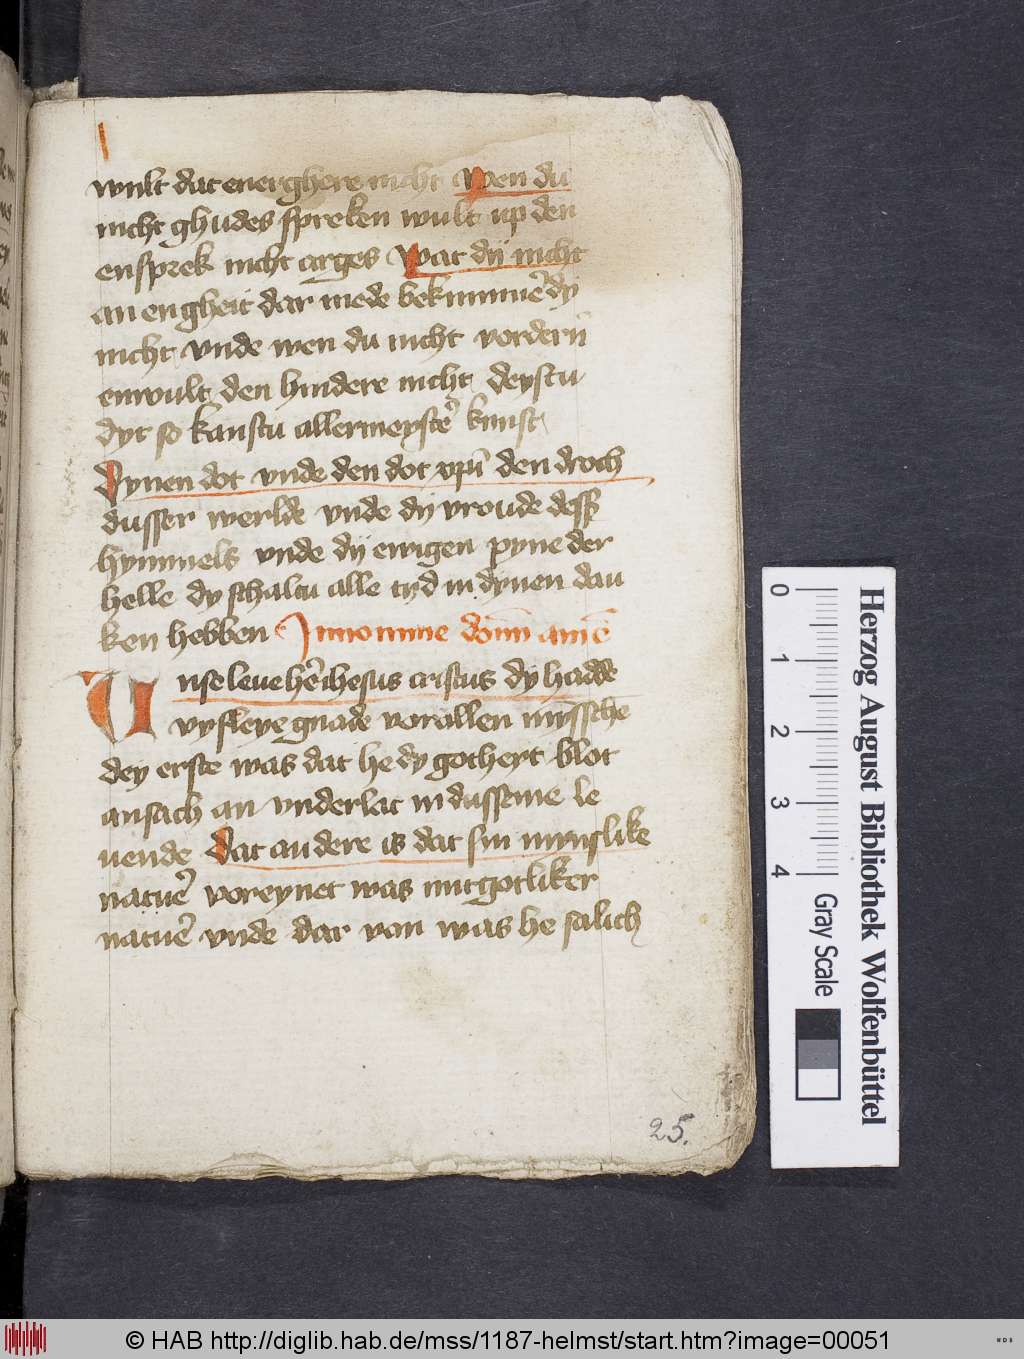 wult dat energhere nicht Wen du
nicht ghudes spreken wult up den
ensprek nicht arges Wat dij nicht
an engheit dar mede bekummer̄ dy
nicht vnde wen du nicht vordern̄
enwult den hindere nicht deystu
dyt so kanstu allermeyster̄ kunst
Dynen dot vnde den dot vn̄ den droch
dusser werlde vnde dij vroude dess
hymmels vnde dij ewigen pyne der
helle dy schaltu alle tyd in dynen dan
ken hebben In nomine dom̄ amē
Unse leue her̄ ihesus cristus dy hadde
vyfleye gnade vor allen mynssche
dey erste was dat he dy gotheyt blot
ansach an vnderlat in dusseme le
uende Dat andere is dat sin mynslike
natuer̄ voreynet was mit gotliker
natuer̄ vnde dar van was he salich
25.
Herzog August Bibliothek Wolfenbüttel
0 1 2 3 4 Gray Scale
© HAB http://diglib.hab.de/mss/1187-helmst/start.htm?image=00051
WDB